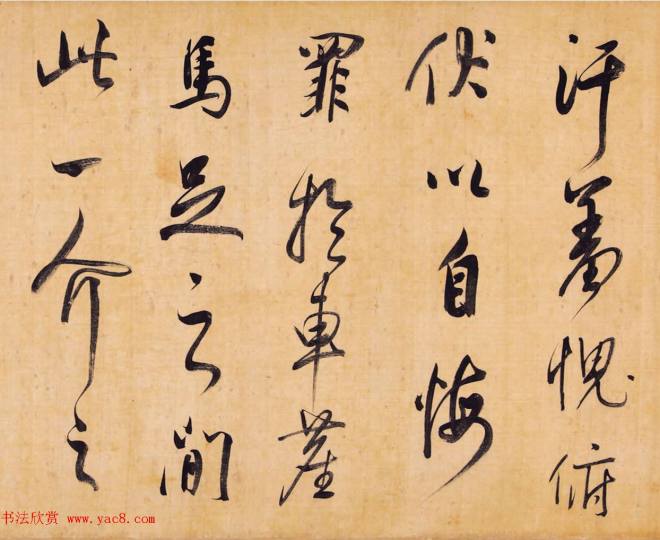 汗羞愧俯
伏以自悔
罪於車塵
馬足之間
此一介之
书法欣赏 www.yac8.com